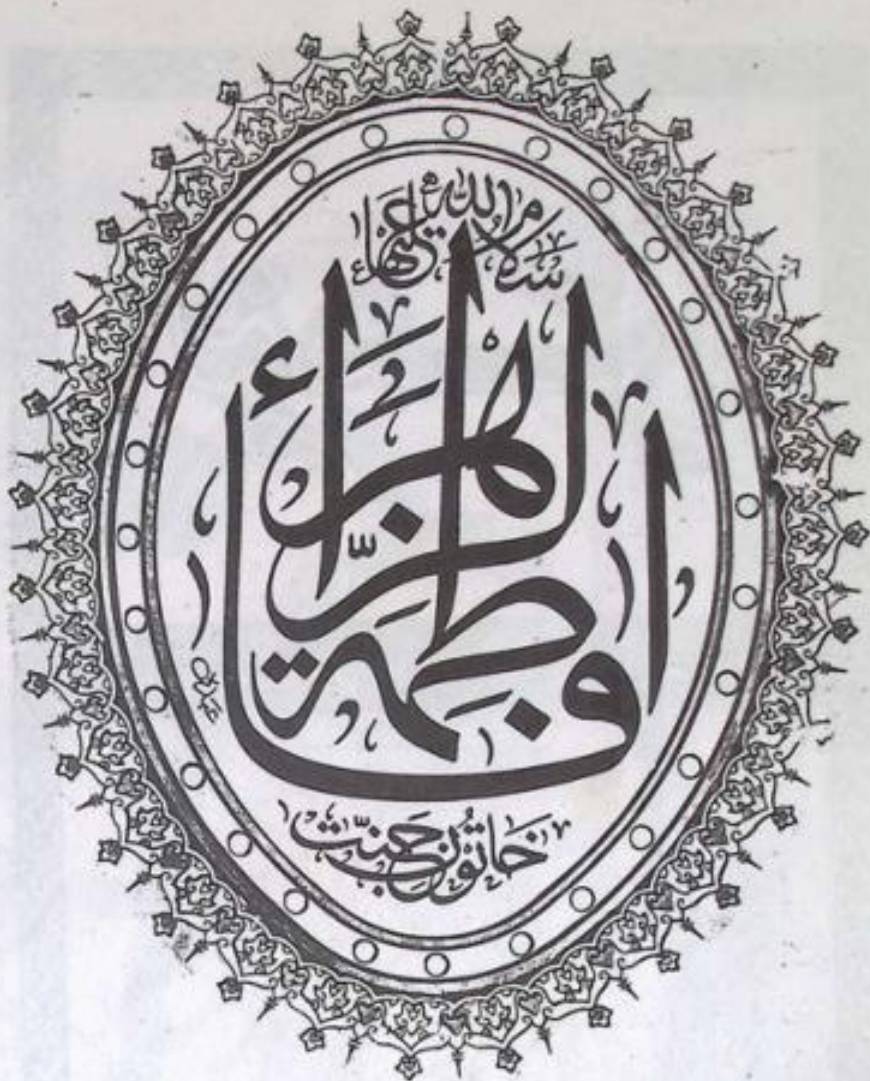 سلام اللہ علیہا
فاطمۃ الزہراء
خاتون جنت